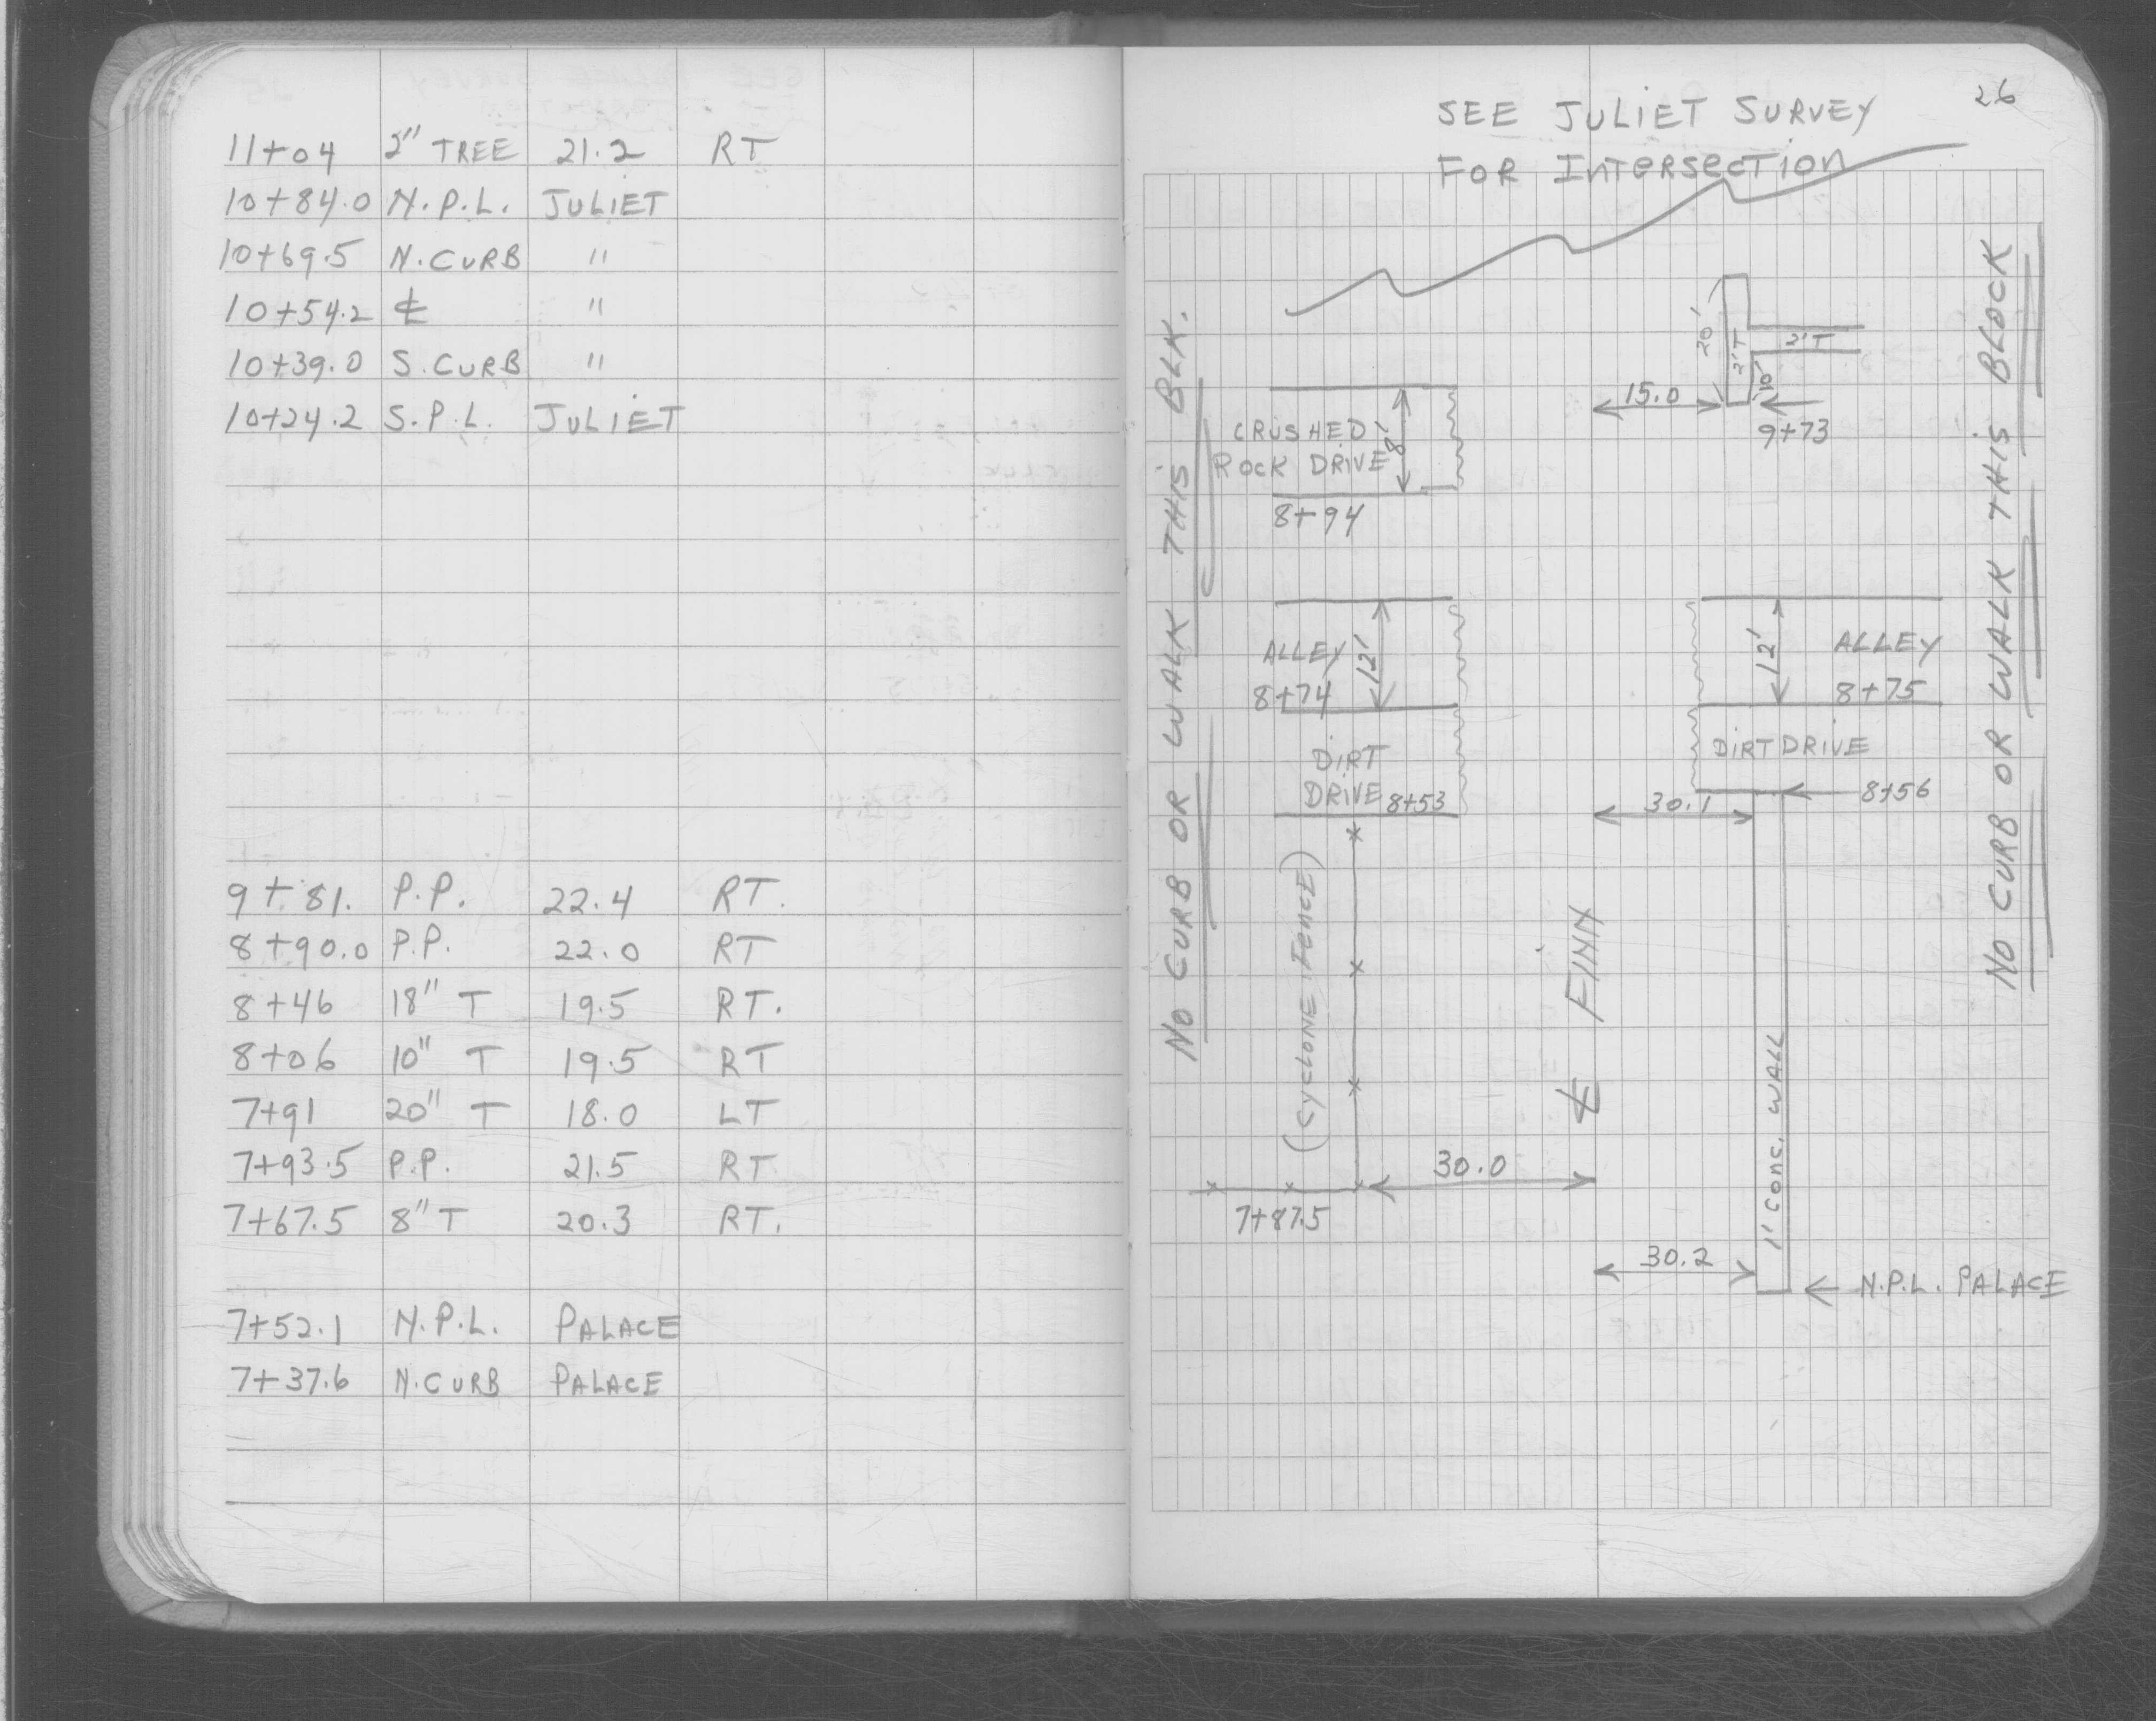 11+04 2" TREE 21.2 RT
10+84.0 N.P.L. JULIET
10+69.5 N. CURB "
10+54.2 ℄ "
10+39.0 S. CURB "
10+24.2 S.P.L. JULIET
9+81. P.P. 22.4 RT.
8+90.0 P.P. 22.0 RT
8+46 18" T 19.5 RT.
8+06 10" T 19.5 RT
7+91 20" T 18.0 LT
7+93.5 P.P. 21.5 RT
7+67.5 8" T 20.3 RT.
7+52.1 N.P.L. PALACE
7+37.6 N. CURB PALACE
26
SEE JULIET SURVEY
FOR INTERSECTION
NO CURB OR WALK THIS BLK.
20'
2'T
2'T
10'
15.0
9+73
CRUSHED
ROCK DRIVE
8'
8+94
ALLEY
8+74
12'
12'
ALLEY
8+75
DIRT
DRIVE 8+53
DIRT DRIVE
8+56
30.1
(CYCLONE FENCE)
℄ FINN
1' CONC. WALL
30.0
7+87.5
30.2
N.P.L. PALACE
NO CURB OR WALK THIS BLOCK